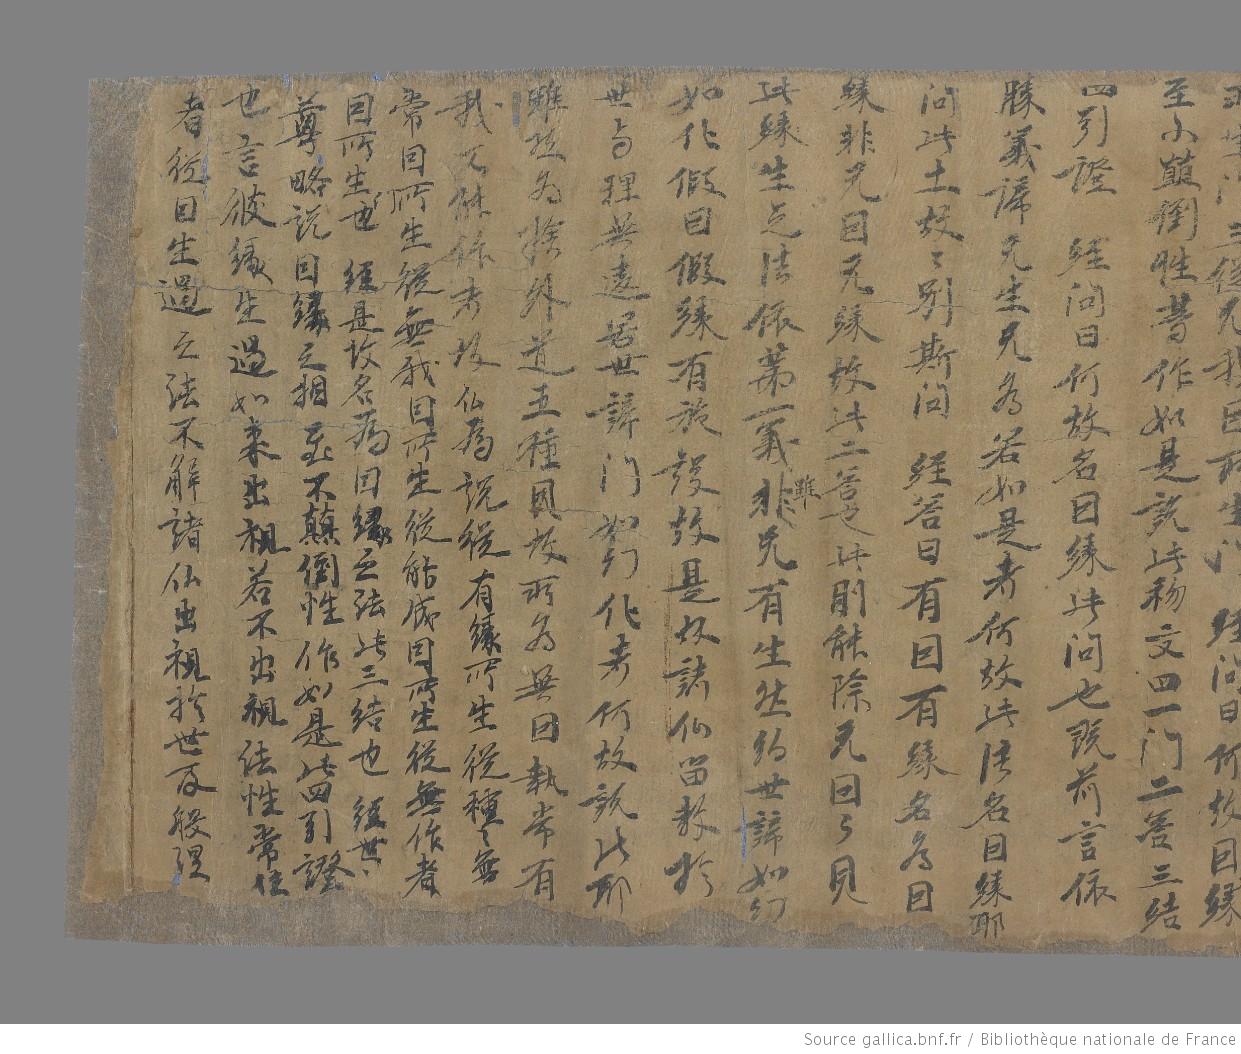 至不顛倒性等作如是說此物文四一門二答三結
四引證 經問曰何故名因緣此問也說前言依
勝義諦无生无為若如是者何故此法名因緣耶
問此土故〻別斯問 經答曰有因有緣名為因
緣非无因无緣故此二答也此則能除无因之見
此緣生之法依第一義雖非无有生然約世諦如幻
如化假因假緣有於設故是故諸仏留教於
世而理無違若世諦門如幻化者何故說此耶
雖然為捨外道五種見故所為無因執常有
我既能作者故仏為說從有緣所生從種〻無
常因所生從無我因所生從能成因所生從無作者
因所生也 經是故名為因緣之法此三結也 經世〻
尊略說因緣之相至不顛倒性作如是此四引證
也言彼緣生過如來出現若不出現法性常住
者從因生過之法不解諸仏出現於世及般涅
Source gallica.bnf.fr / Bibliothèque nationale de France